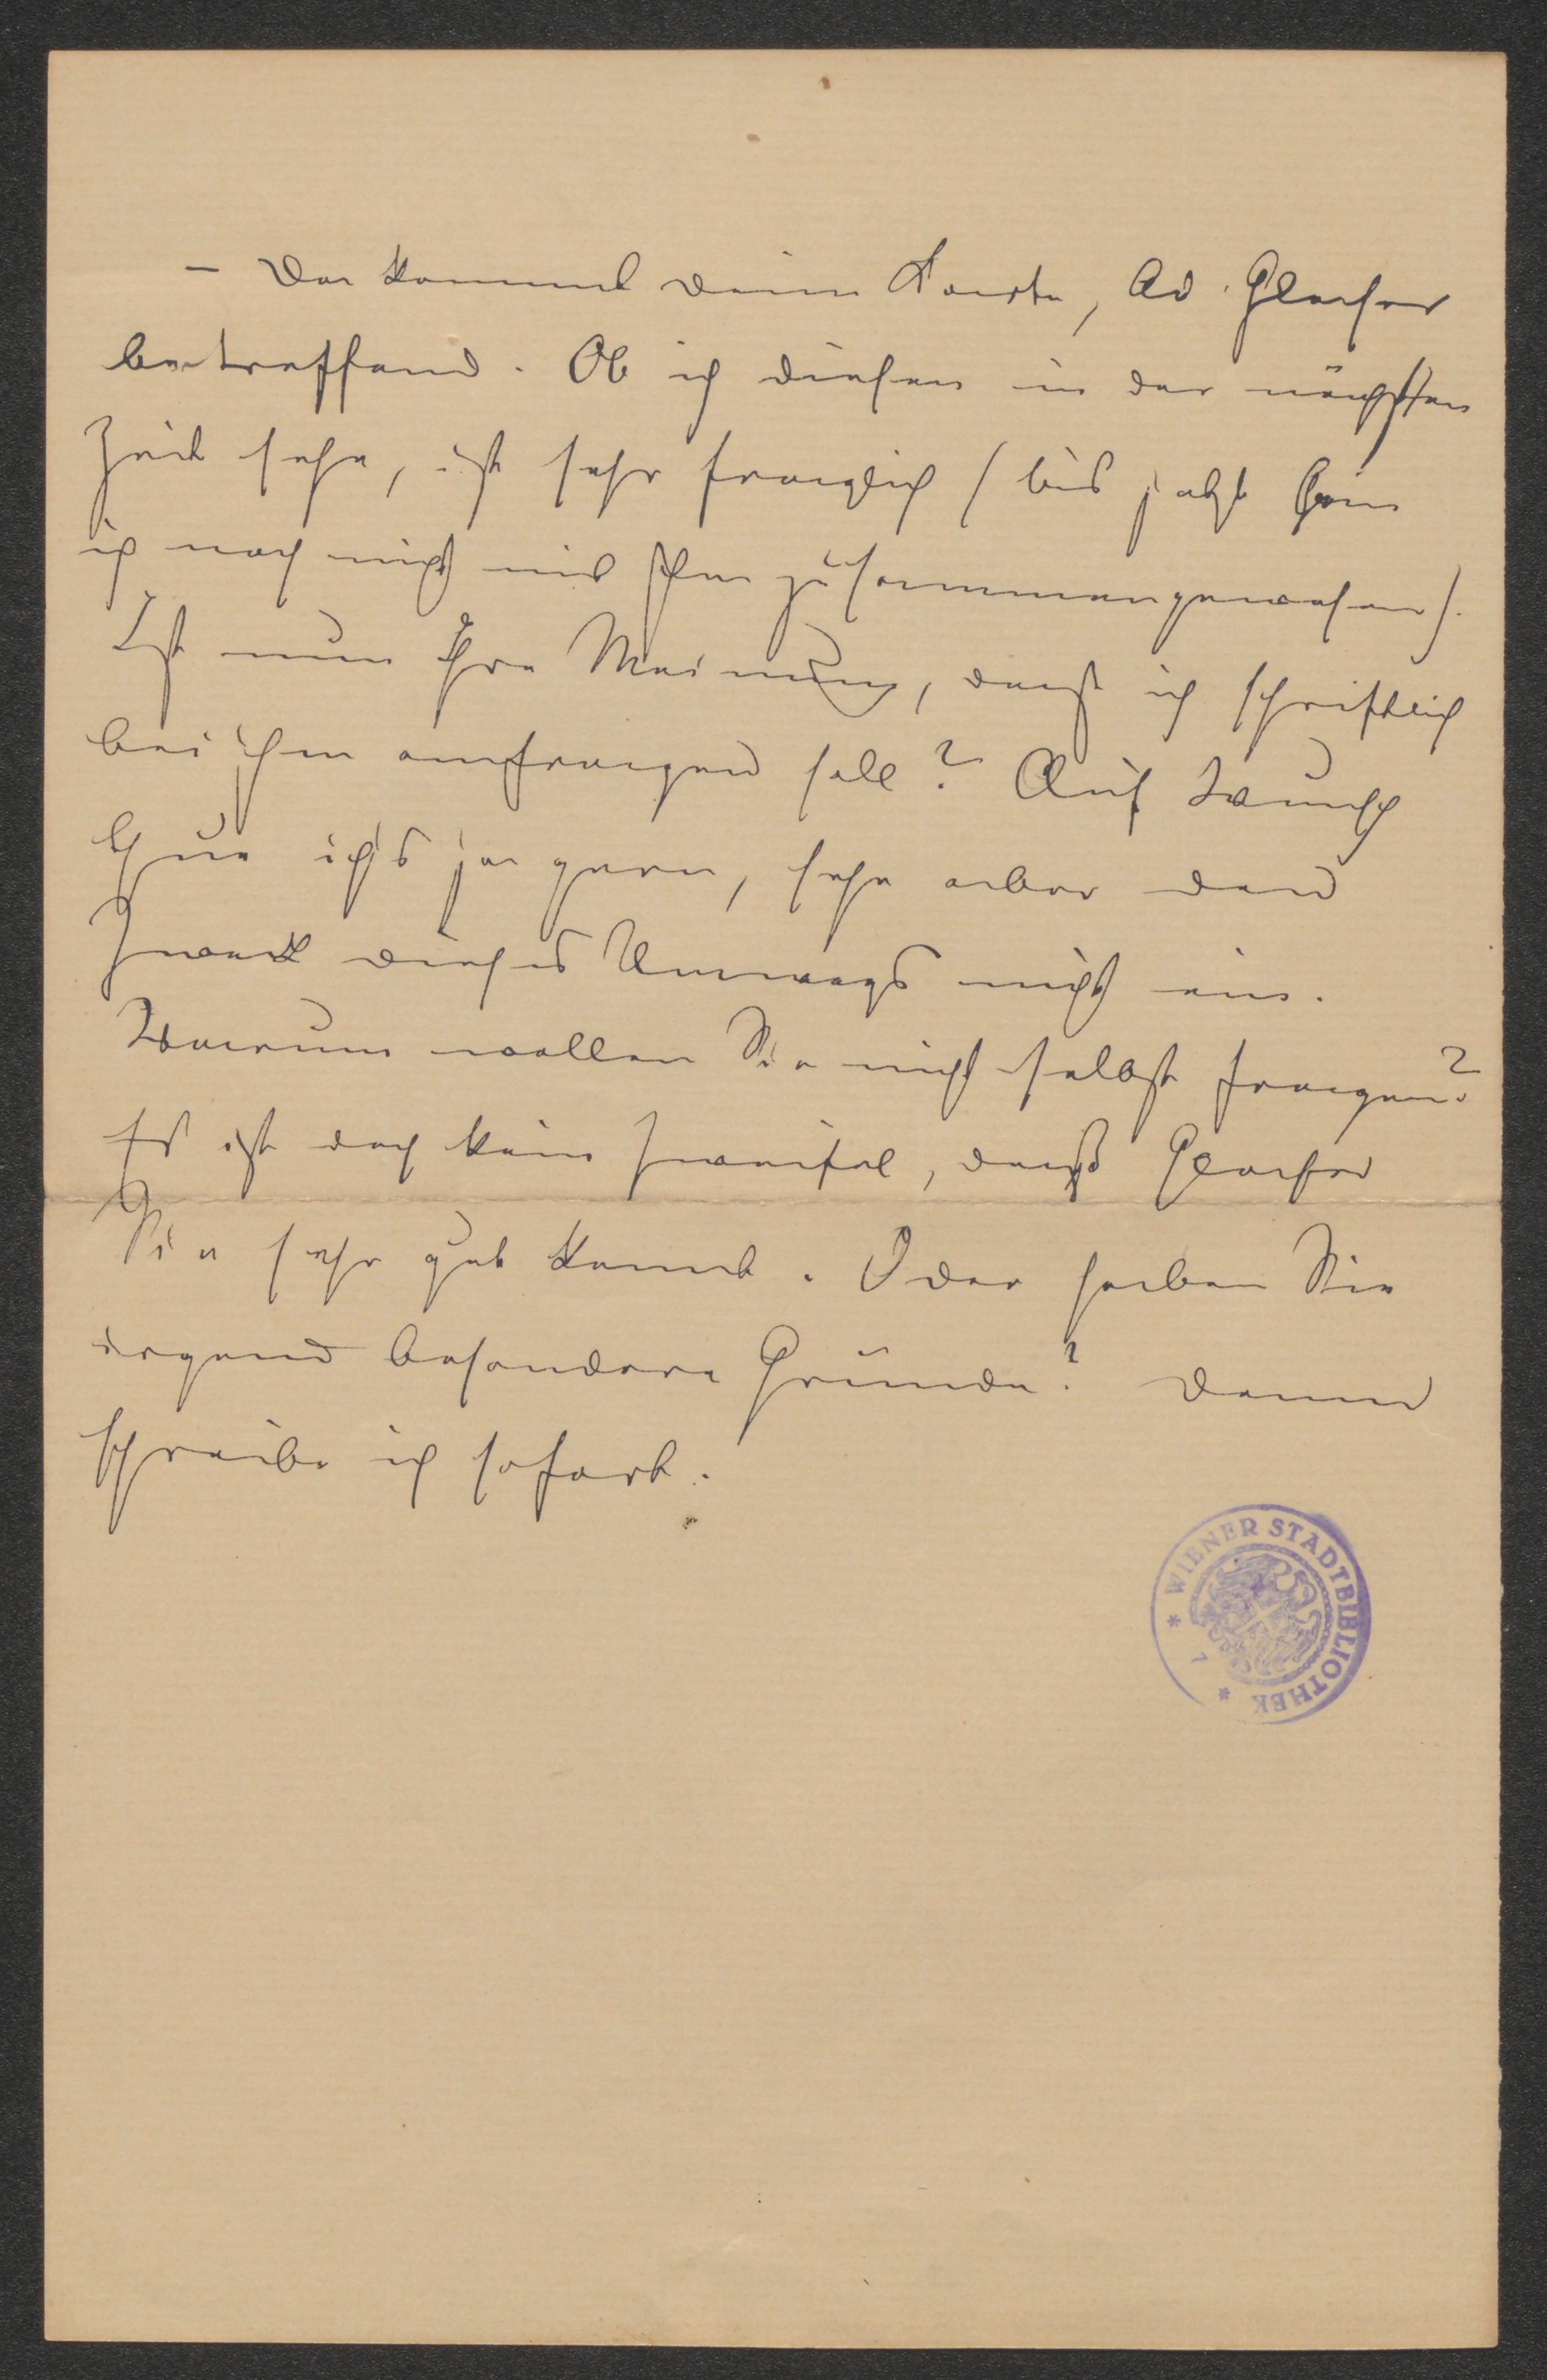 – Da kommt Deine Karte, Ad. Glaser
betreffend. Ob ich diesen in der nächsten
Zeit sehe, ist sehr fraglich (bis jetzt bin
ich noch nicht mit ihm zusammengewesen).
Ist nun Ihre Meinung, daß ich schriftlich
bei ihm anfragen soll? Auf Wunsch
thue ichs ja gern, sehe aber den
Zweck dieses Umwegs nicht ein.
Warum wollen Sie nicht selbst fragen?
Es ist doch kein Zweifel, daß Glaser
Sie sehr gut kennt. Oder haben Sie
irgend besondere Gründe? Dann
schreibe ich sofort.
* WIENER STADTBIBLIOTHEK *